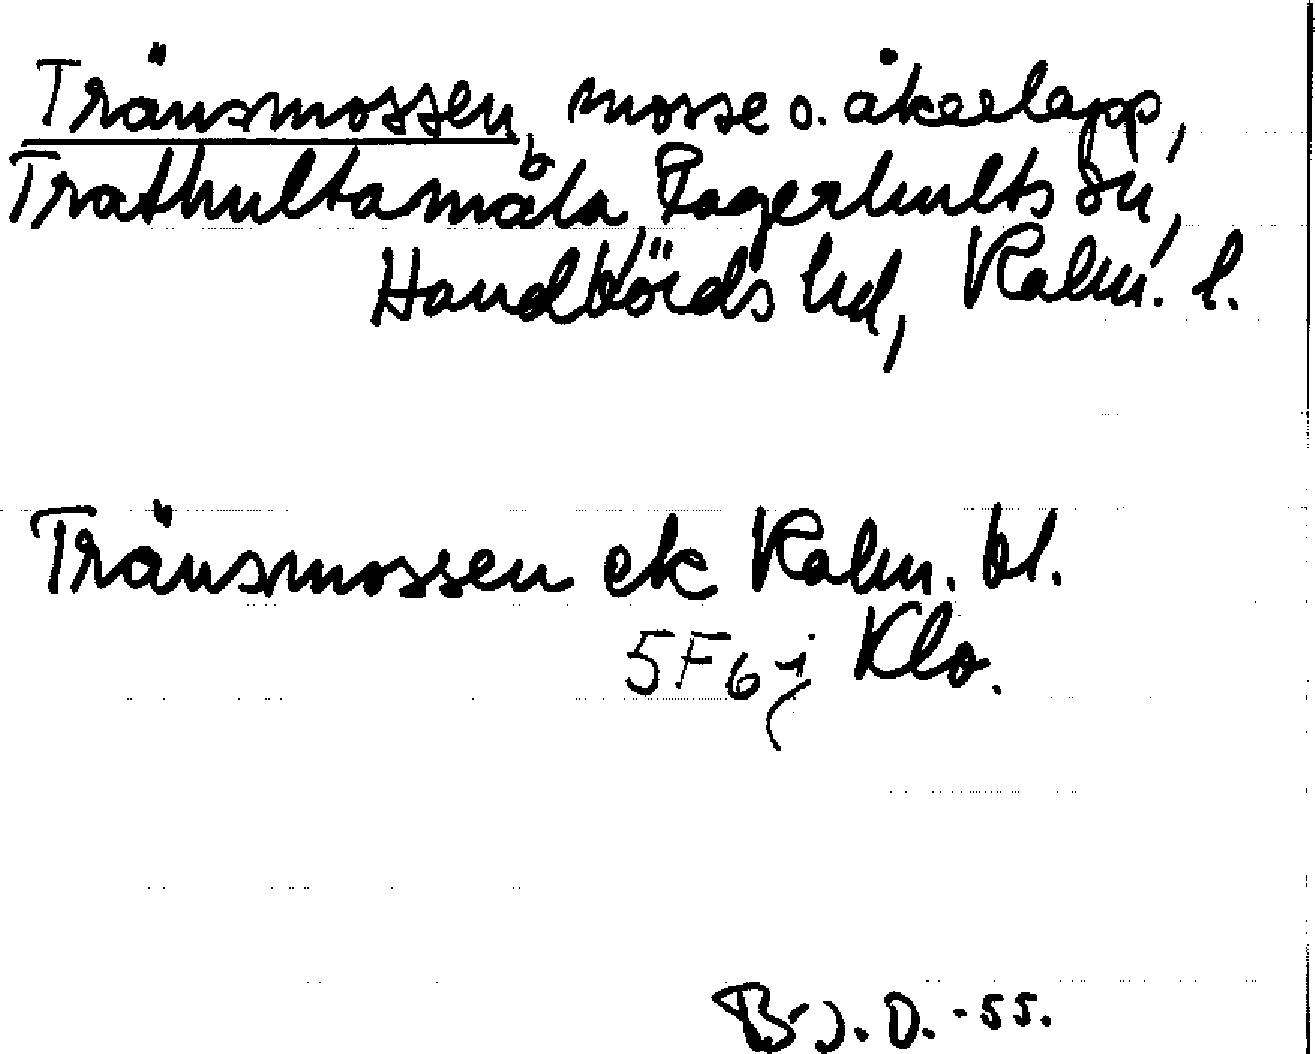 Tränsmossen, mosse o. åkerlapp,
Trathultamåla, Fagerhults sn,
Handbörds hd, Kalm. l.
Tränsmossen ek Kalm. bl.
5F6j Klo.
B. J. D. -55.